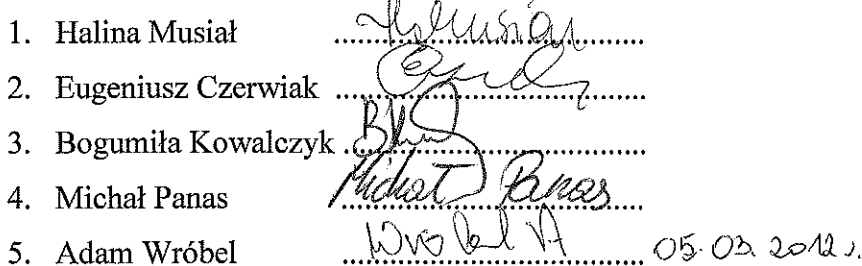 1. Halina Musiał ........ HMusiał
2. Eugeniusz Czerwiak ........
3. Bogumiła Kowalczyk ........
4. Michał Panas ........ Michał Panas
5. Adam Wróbel ........ Wróbel A 05.03.2012 r.